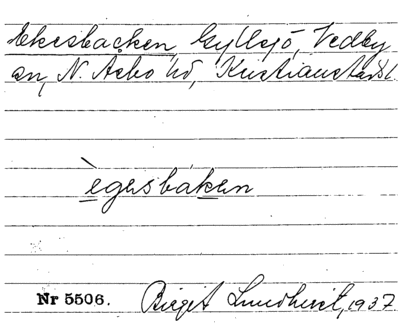 Ekesbacken, Gyllsjö, Vedby
sn, N. Åsbo hd, Kristianstads l.
ègesbaken
Nr 5506. Birgit Lundkvist, 1937